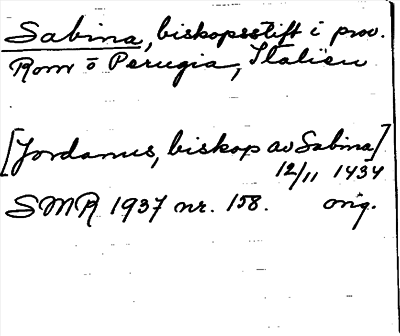 Sabina, biskopsstift i prov.
Rom o Perugia, Italien
[Jordanus, biskop av Sabina]
12/11 1434
SMR 1937 nr. 158. orig.